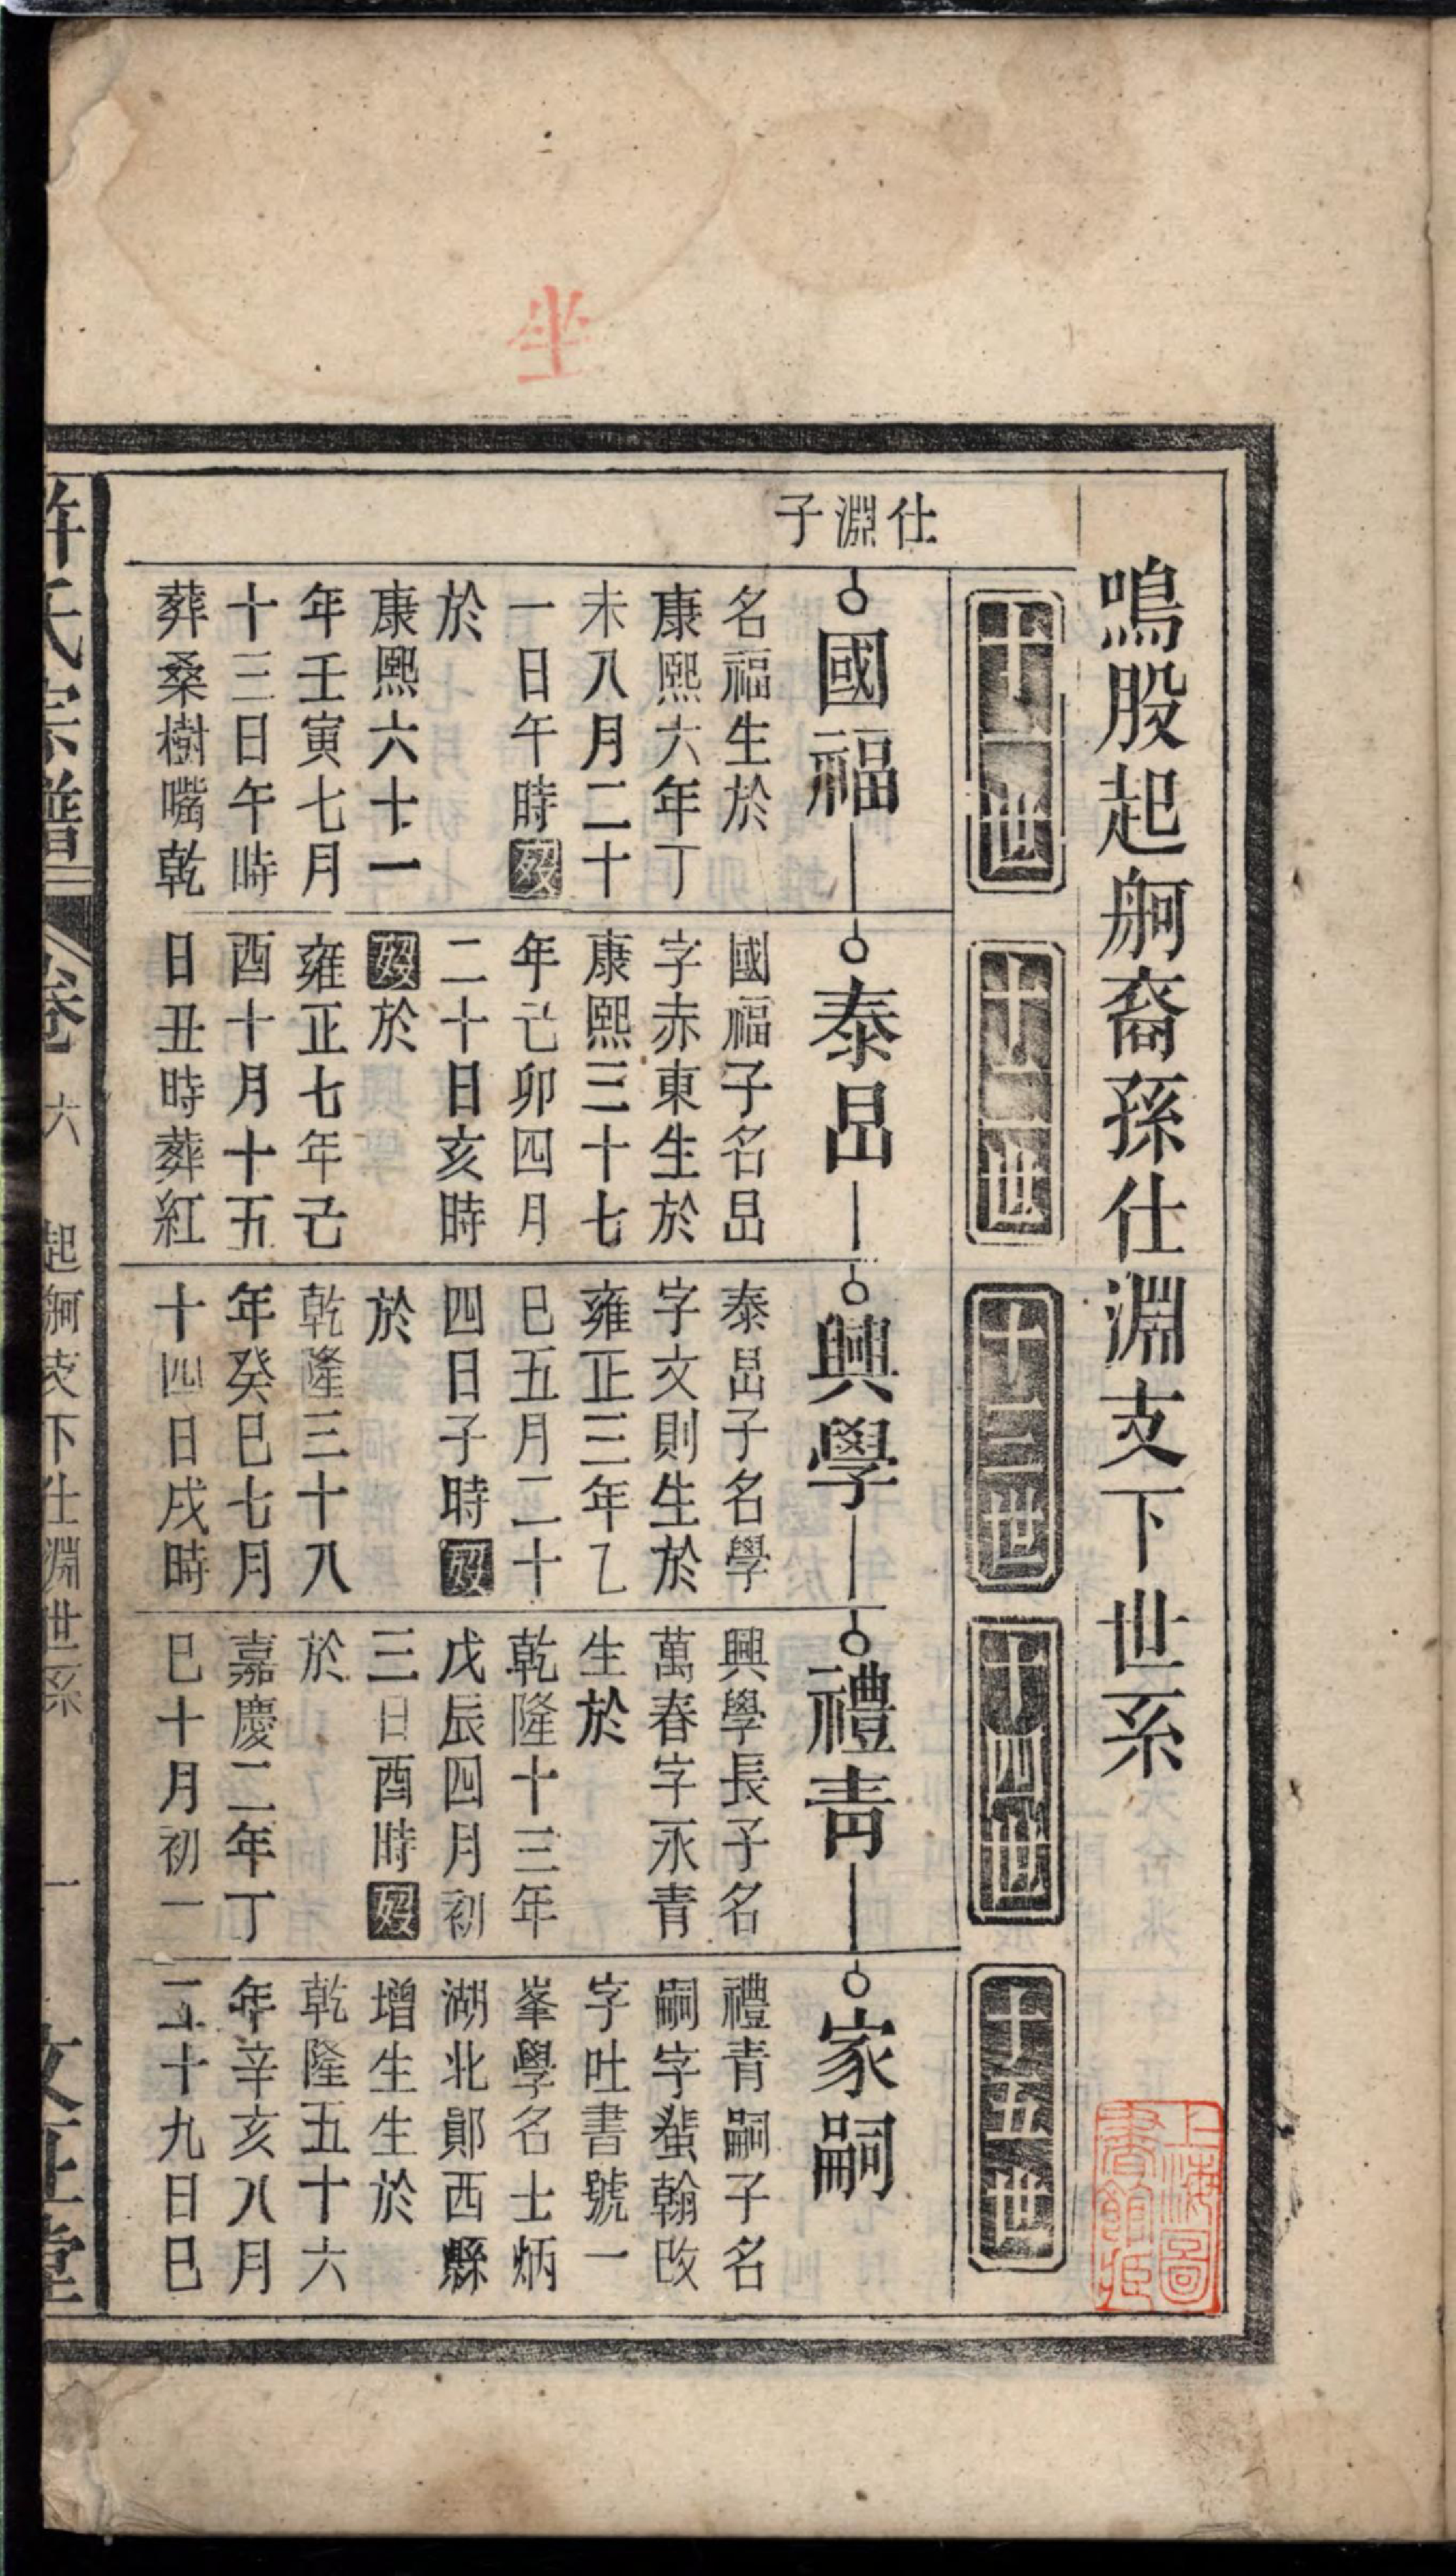 鳴股起舸裔孫仕淵支下世系
十一世
十二世
十三世
十四世
十五世
仕淵子
國福
名福生於
康熙六年丁
未八月二十
一日午時歿
於
康熙六十一
年壬寅七月
十三日午時
葬桑樹嘴乾
泰昌
國福子名昌
字赤東生於
康熙三十七
年己卯四月
二十日亥時
歿於
雍正七年己
酉十月十五
日丑時葬紅
興學
泰昌子名學
字文則生於
雍正三年乙
巳五月二十
四日子時歿
於
乾隆三十八
年癸巳七月
十四日戌時
禮青
興學長子名
萬春字永青
生於
乾隆十三年
戊辰四月初
三日酉時歿
於
嘉慶二年丁
巳十月初一
家嗣
禮青嗣子名
嗣字蜚翰改
字吐書號一
峯學名士炳
湖北鄖西縣
增生生於
乾隆五十六
年辛亥八月
二十九日巳
許氏宗譜
卷六
起舸支下仕淵世系
一
文正堂
上海圖
書館藏
坐